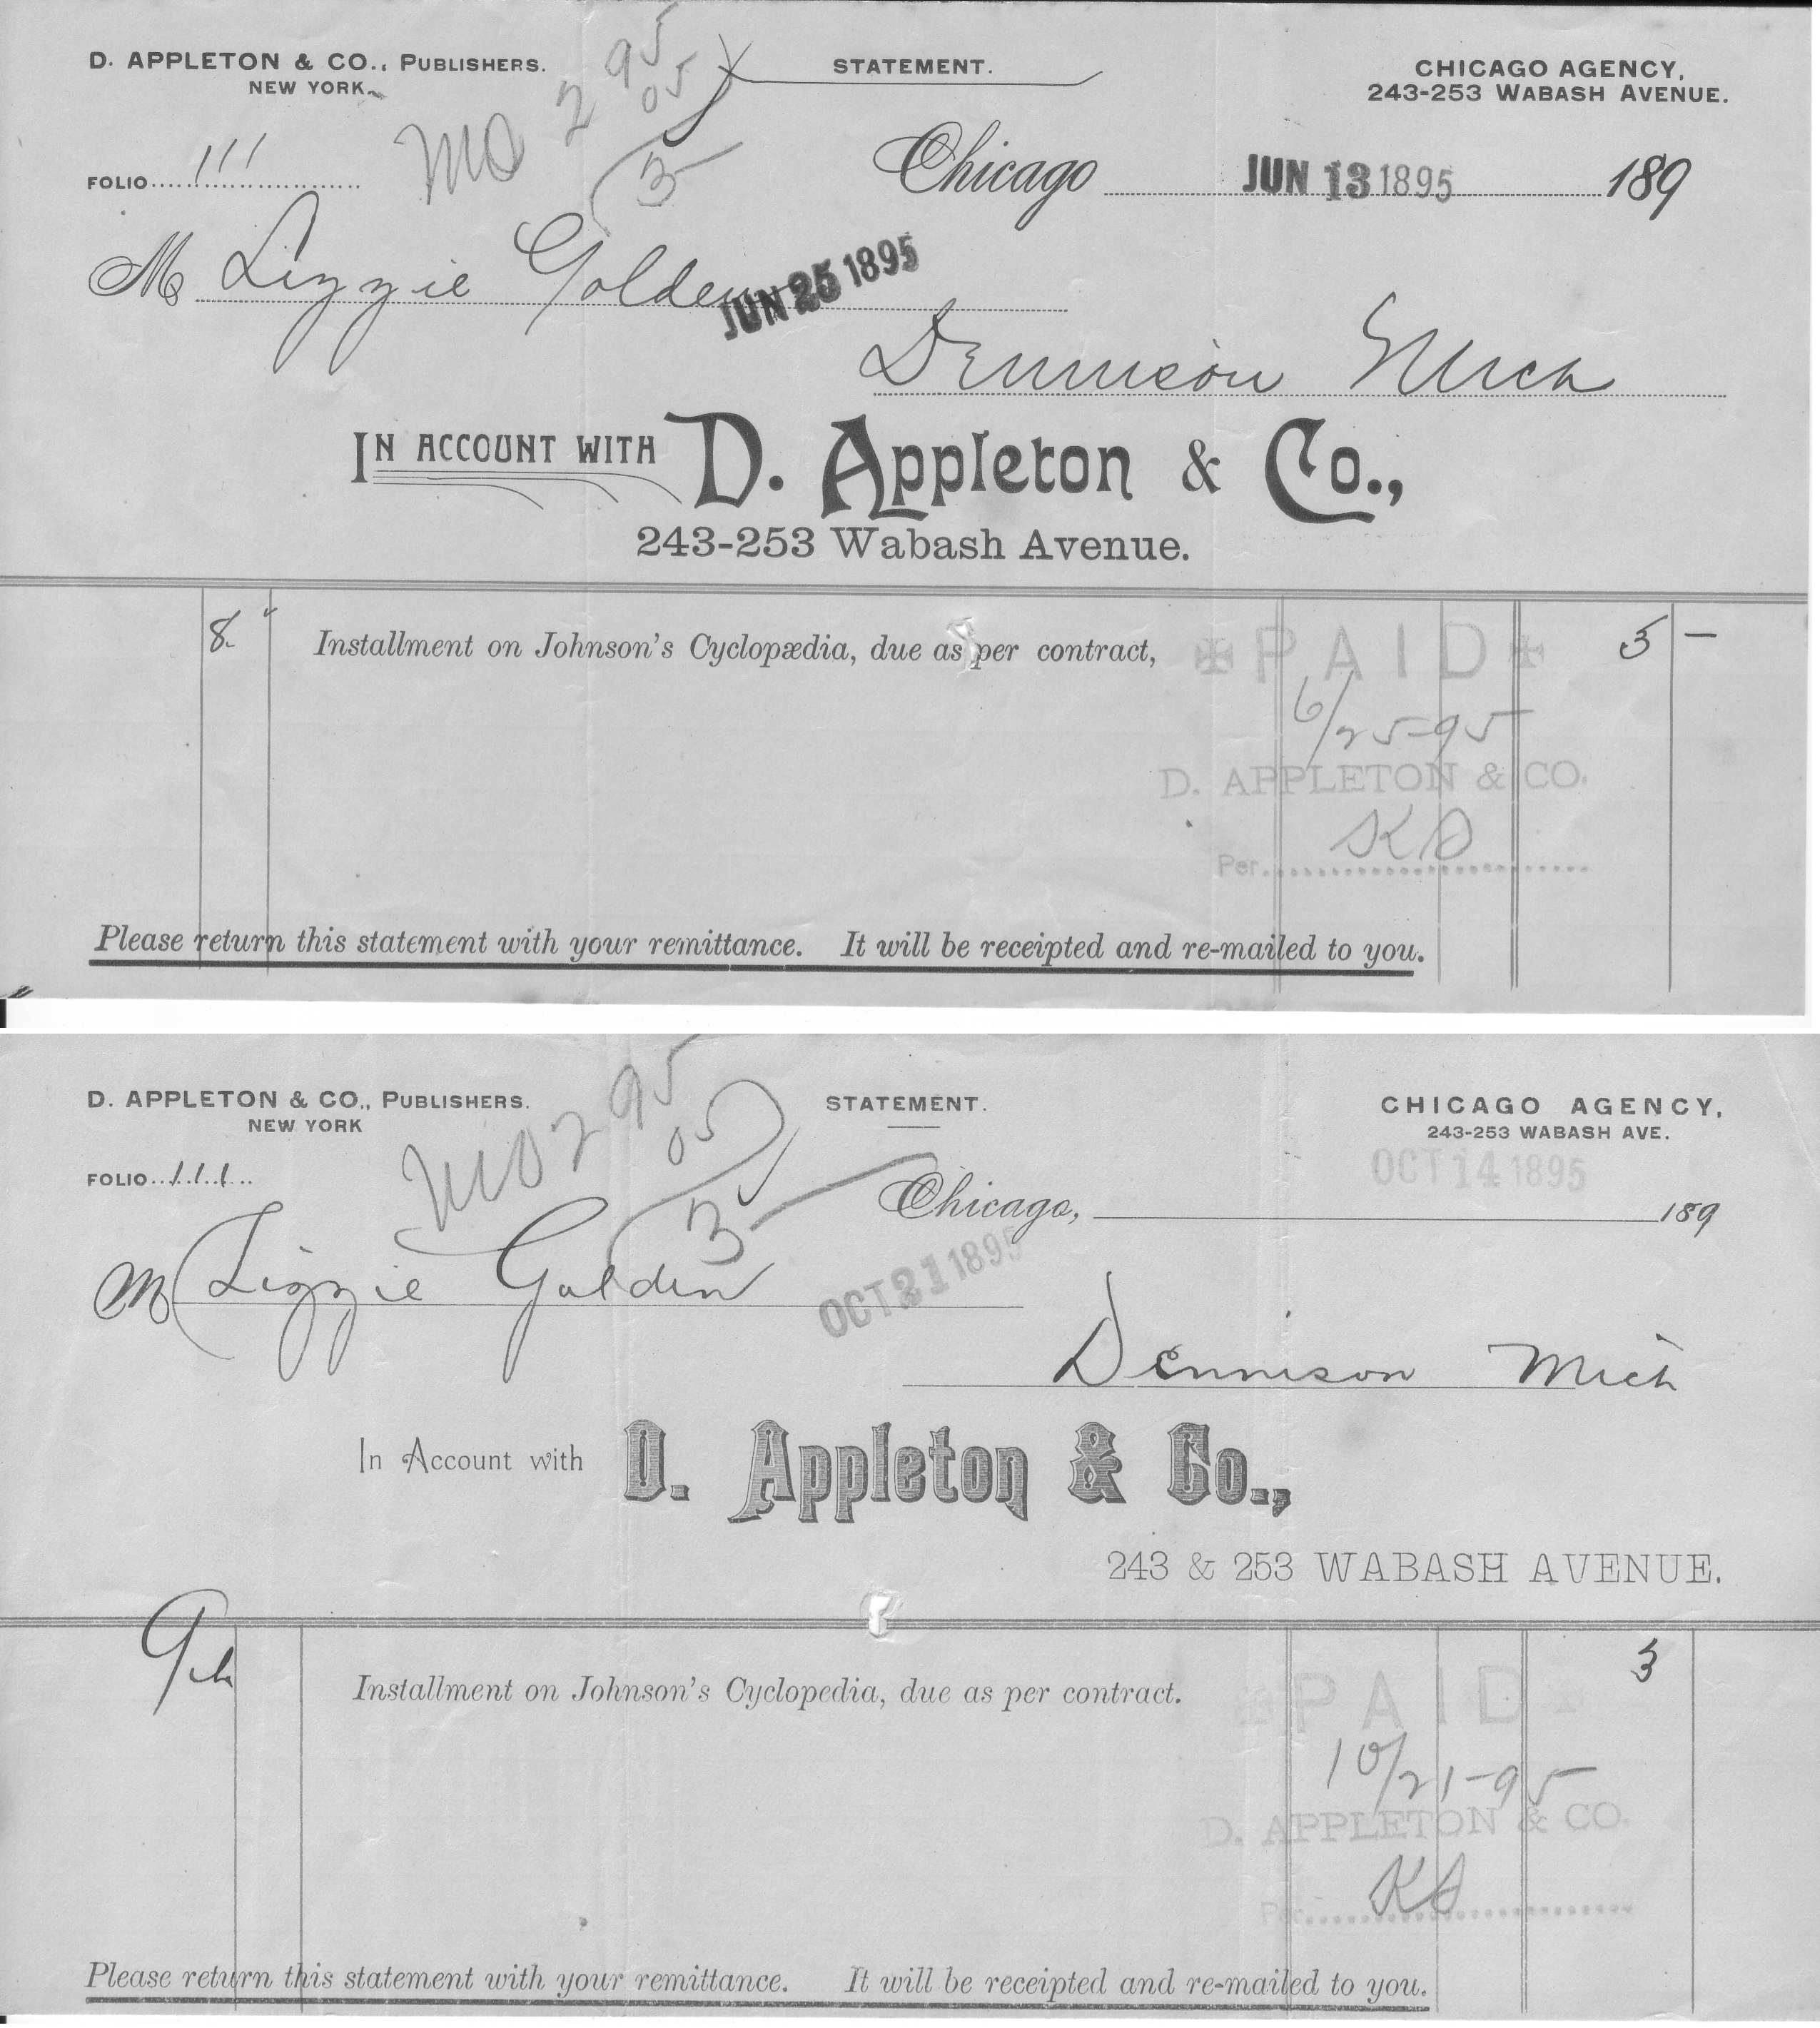 D. APPLETON & CO., PUBLISHERS.
NEW YORK.
STATEMENT.
CHICAGO AGENCY,
243-253 WABASH AVENUE.
MO 2 95
05
3 —
FOLIO 111
Chicago JUN 13 1895 189
M Lizzie Golden
JUN 25 1895
Dennison Mich
IN ACCOUNT WITH D. Appleton & Co.,
243-253 Wabash Avenue.
8 " Installment on Johnson's Cyclopædia, due as per contract, 3 —
PAID
6/25-95
D. APPLETON & CO.
Per KS
Please return this statement with your remittance. It will be receipted and re-mailed to you.
D. APPLETON & CO., PUBLISHERS.
NEW YORK
STATEMENT.
CHICAGO AGENCY,
243-253 WABASH AVE.
MO 2 95
05
3 —
FOLIO 111
OCT 14 1895
Chicago, 189
M Lizzie Golden
OCT 21 1895
Dennison Mich
In Account with D. Appleton & Co.,
243 & 253 WABASH AVENUE.
9th
Installment on Johnson's Cyclopedia, due as per contract. 3
PAID
10/21-95
D. APPLETON & CO.
Per KS
Please return this statement with your remittance. It will be receipted and re-mailed to you.